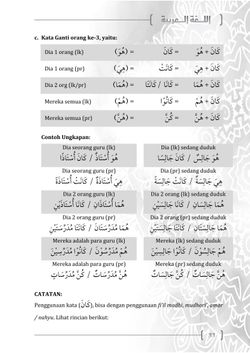 اللغة العربية
c. Kata Ganti orang ke-3, yaitu:
Dia 1 orang (lk) (هُوَ) = كَانَ = كَانَ + هُوَ
Dia 1 orang (pr) (هِيَ) = كَانَتْ = كَانَ + هِيَ
Dia 2 org (lk/pr) (هُمَا) = كَانَا / كَانَتَا = كَانَ + هُمَا
Mereka semua (lk) (هُمْ) = كَانُوْا = كَانَ + هُمْ
Mereka semua (pr) (هُنَّ) = كُنَّ = كَانَ + هُنَّ
Contoh Ungkapan:
Dia seorang guru (lk) Dia (lk) sedang duduk
هُوَ أُسْتَاذٌ / كَانَ أُسْتَاذًا هُوَ جَالِسٌ / كَانَ جَالِسًا
Dia seorang guru (pr) Dia (pr) sedang duduk
هِيَ أُسْتَاذَةٌ / كَانَتْ أُسْتَاذَةً هِيَ جَالِسَةٌ / كَانَتْ جَالِسَةً
Dia 2 orang guru (lk) Dia 2 orang (lk) sedang duduk
هُمَا أُسْتَاذَانِ / كَانَا أُسْتَاذَيْنِ هُمَا جَالِسَانِ / كَانَا جَالِسَيْنِ
Dia 2 orang guru (pr) Dia 2 orang (pr) sedang duduk
هُمَا مُدَرِّسَتَانِ / كَانَتَا مُدَرِّسَتَيْنِ هُمَا جَالِسَتَانِ / كَانَتَا جَالِسَتَيْنِ
Mereka adalah guru (lk) Mereka (lk) sedang duduk
هُمْ مُدَرِّسُوْنَ / كَانُوْا مُدَرِّسِيْنَ هُمْ جَالِسُوْنَ / كَانُوْا جَالِسِيْنَ
Mereka adalah para guru (pr) Mereka (pr) sedang duduk
هُنَّ مُدَرِّسَاتٌ / كُنَّ مُدَرِّسَاتٍ هُنَّ جَالِسَاتٌ / كُنَّ جَالِسَاتٍ
CATATAN:
Penggunaan kata (كَانَ), bisa dengan penggunaan fi'il madhi, mudhori', amar
/ nahyu. Lihat rincian berikut: